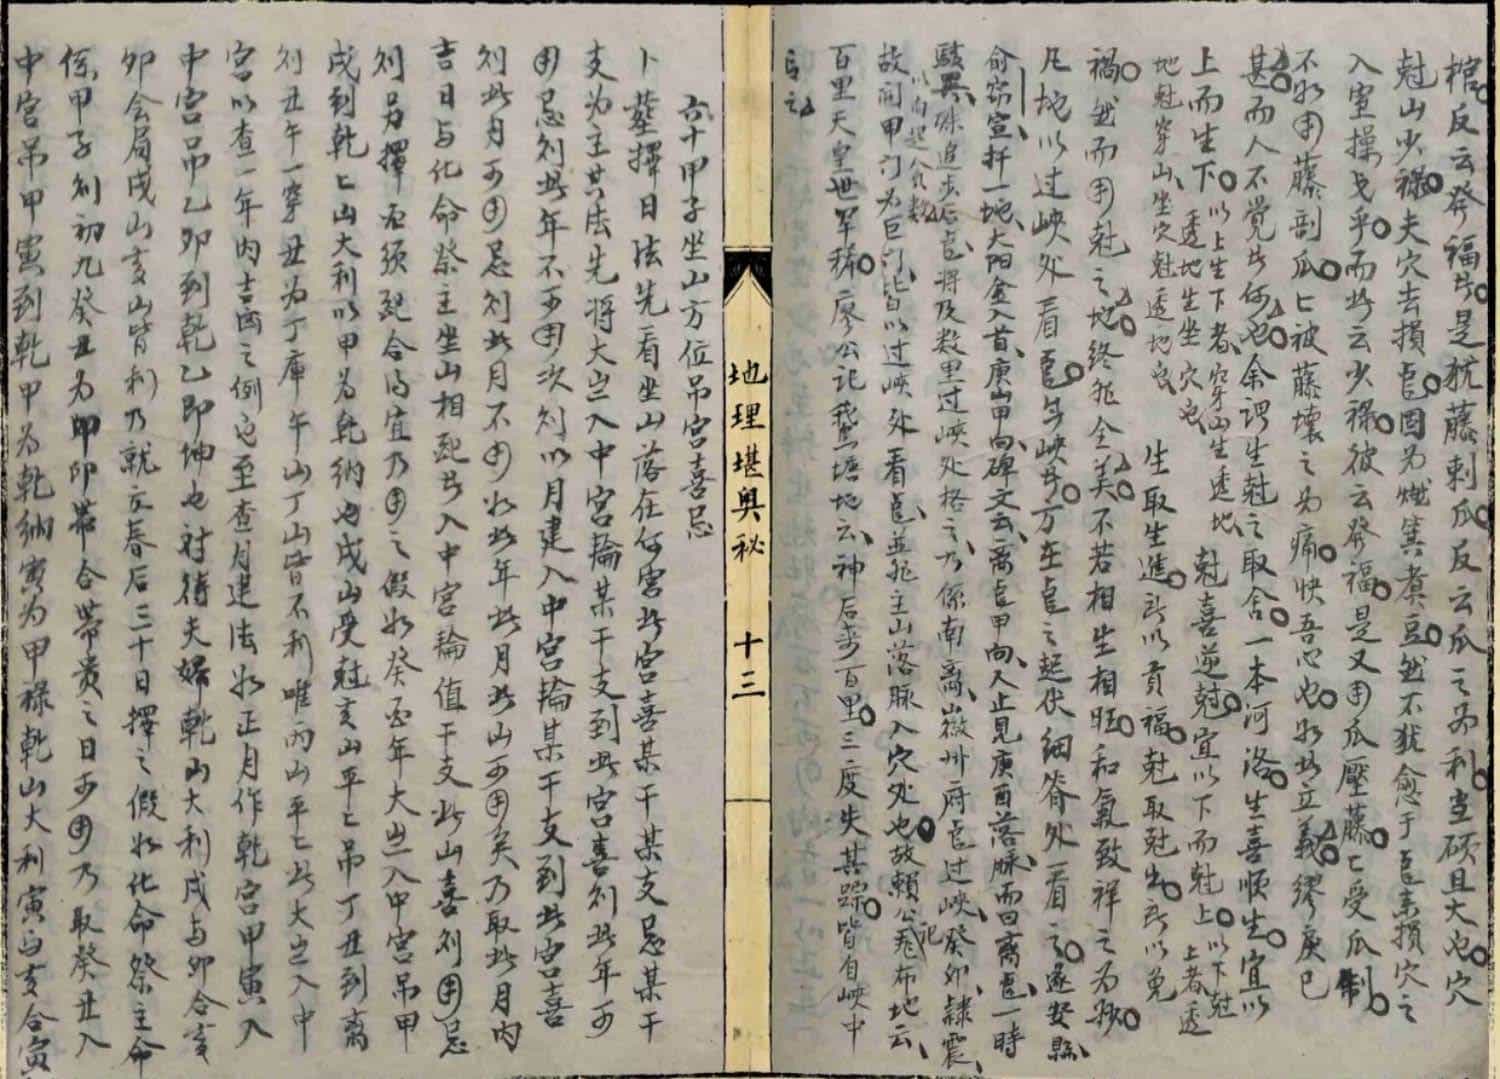 棺反云發福此是犹藤剌瓜反云瓜之为利当碩且大也穴
尅山少祿夫穴去損龍固为燃箕煮豆然不犹愈于龍来損穴之
入室操戈乎而此云少祿彼云發福是又用瓜壓藤亡受瓜制
不如用藤剖瓜亡被藤壞之为痛快吾心也如此立義繆戾已
甚而人不覚此何也余謂生尅之取舍一本河洛生喜順生宜以
上而生下以上生下者穿山生透地透地生坐穴也尅喜逆尅宜以下而尅上以下尅上者透
地尅穿山坐穴尅透地也 生取生進所以貢福尅取尅出所以免
禍然而用尅之地终非全美不若相生相旺和氣致祥之为妙
凡地以过峽处看龍無峽此方在龍之起伏細脊处看之遂安縣
俞 宣扦一地太阳金入首庚山甲向碑文云离龍甲向人止見庚酉落脉而曰离龍一時
駭異殊追步后龍将及数里过峽处格之乃係南离徽州府龍过峽癸卯隸震
以向起入首数
故闹甲门为巨门此皆以过峽处看龍並非主山落脉入穴处也故賴公飛布地云
百里天皇世罕稀廖公记鵞塘地云神后步百里三度失其踪皆自峽中
言之
地理堪奥秘 十三
六十甲子坐山方位吊宮喜忌
卜塟擇日法先看坐山落在何宮此宮喜某干某支忌某干
支为主其法先将大歲入中宮輪某干支到此宮喜則此年可
用忌則此年不可用次則以月建入中宮輪某干支到此宮喜
則此月可用忌則此月不用如此年此月此山可用矣乃取此月内
吉日与化命祭主坐山相配此入中宮輪值干支此山喜則用忌
則另擇否须配合得宜乃用之假如癸酉年大歲入中宮吊甲
戌到乾乾山大利以甲为乾纳也戌山受尅亥山平亡吊丁丑到离
則丑午一穿丑为丁庫午山丁山皆不利唯丙山平亡此大歲入中
宮以查一年内吉凶之例也至查月建法如正月作乾宮甲寅入
中宮吊乙卯到乾乙即坤也対待夫婦乾山大利戌与卯合亥
卯会局戌山亥山皆利乃就立春后三十日擇之假如化命祭主命
係甲子則初九癸丑为即即帶合帶贵之日可用乃取癸丑入
中宮吊甲寅到乾甲为乾纳寅为甲祿乾山大利寅与亥合寅